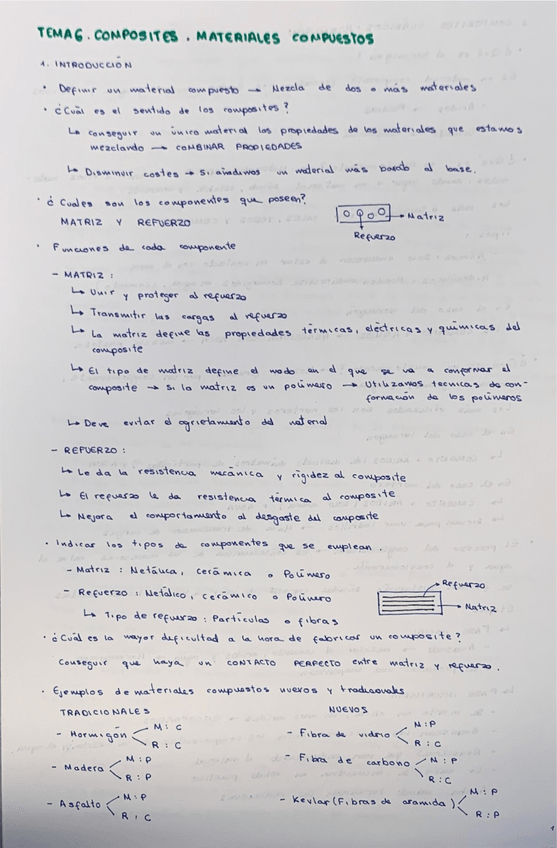 TEMA 6. COMPOSITES. MATERIALES COMPUESTOS
1. INTRODUCCIÓN
· Definir un material compuesto → Mezcla de dos o más materiales
· ¿Cuál es el sentido de los composites?
↳ conseguir un único material las propiedades de los materiales que estamos
mezclando → COMBINAR PROPIEDADES
↳ Disminuir costes → Si añadimos un material más barato al base.
· ¿Cuáles son los componentes que poseen?
MATRIZ Y REFUERZO
→ Matriz
Refuerzo
· Funciones de cada componente
- MATRIZ:
↳ Unir y proteger al refuerzo
↳ Transmitir las cargas al refuerzo
↳ La matriz define las propiedades térmicas, eléctricas y químicas del
composite
↳ El tipo de matriz define el modo en el que se va a conformar el
composite → Si la matriz es un polímero → Utilizamos técnicas de con-
formación de los polímeros
↳ Debe evitar el agrietamiento del material
- REFUERZO:
↳ Le da la resistencia mecánica y rigidez al composite
↳ El refuerzo le da resistencia térmica al composite
↳ Mejora el comportamiento al desgaste del composite
· Indicar los tipos de componentes que se emplean.
- Matriz: Metálica, cerámica o Polímero
- Refuerzo: Metálico, cerámico o Polímero
↳ Tipo de refuerzo: Partículas o fibras
→ Refuerzo
→ Matriz
· ¿Cuál es la mayor dificultad a la hora de fabricar un composite?
Conseguir que haya un CONTACTO PERFECTO entre matriz y refuerzo.
· Ejemplos de materiales compuestos nuevos y tradicionales
TRADICIONALES
- Hormigón
M: C
R: C
- Madera
M: P
R: P
- Asfalto
M: P
R: C
NUEVOS
- Fibra de vidrio
M: P
R: C
- Fibra de carbono
M: P
R: C
- Kevlar (Fibras de aramida)
M: P
R: P
1